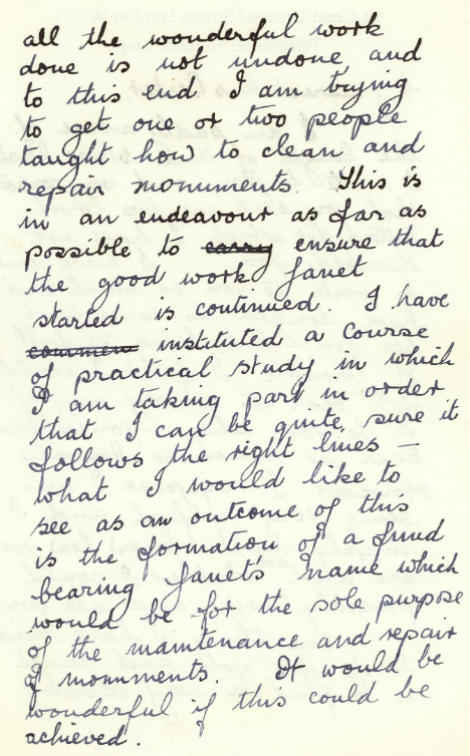 all the wonderful work
done is not undone, and
to this end I am trying
to get one or two people
taught how to clean and
repair monuments. This is
in an endeavour as far as
possible to carry ensure that
the good work Janet
started is continued. I have
commen instituted a course
of practical study in which
I am taking part in order
that I can be quite sure it
follows the right lines —
what I would like to
see as an outcome of this
is the formation of a fund
bearing Janet's name which
would be for the sole purpose
of the maintenance and repair
of monuments. It would be
wonderful if this could be
achieved.